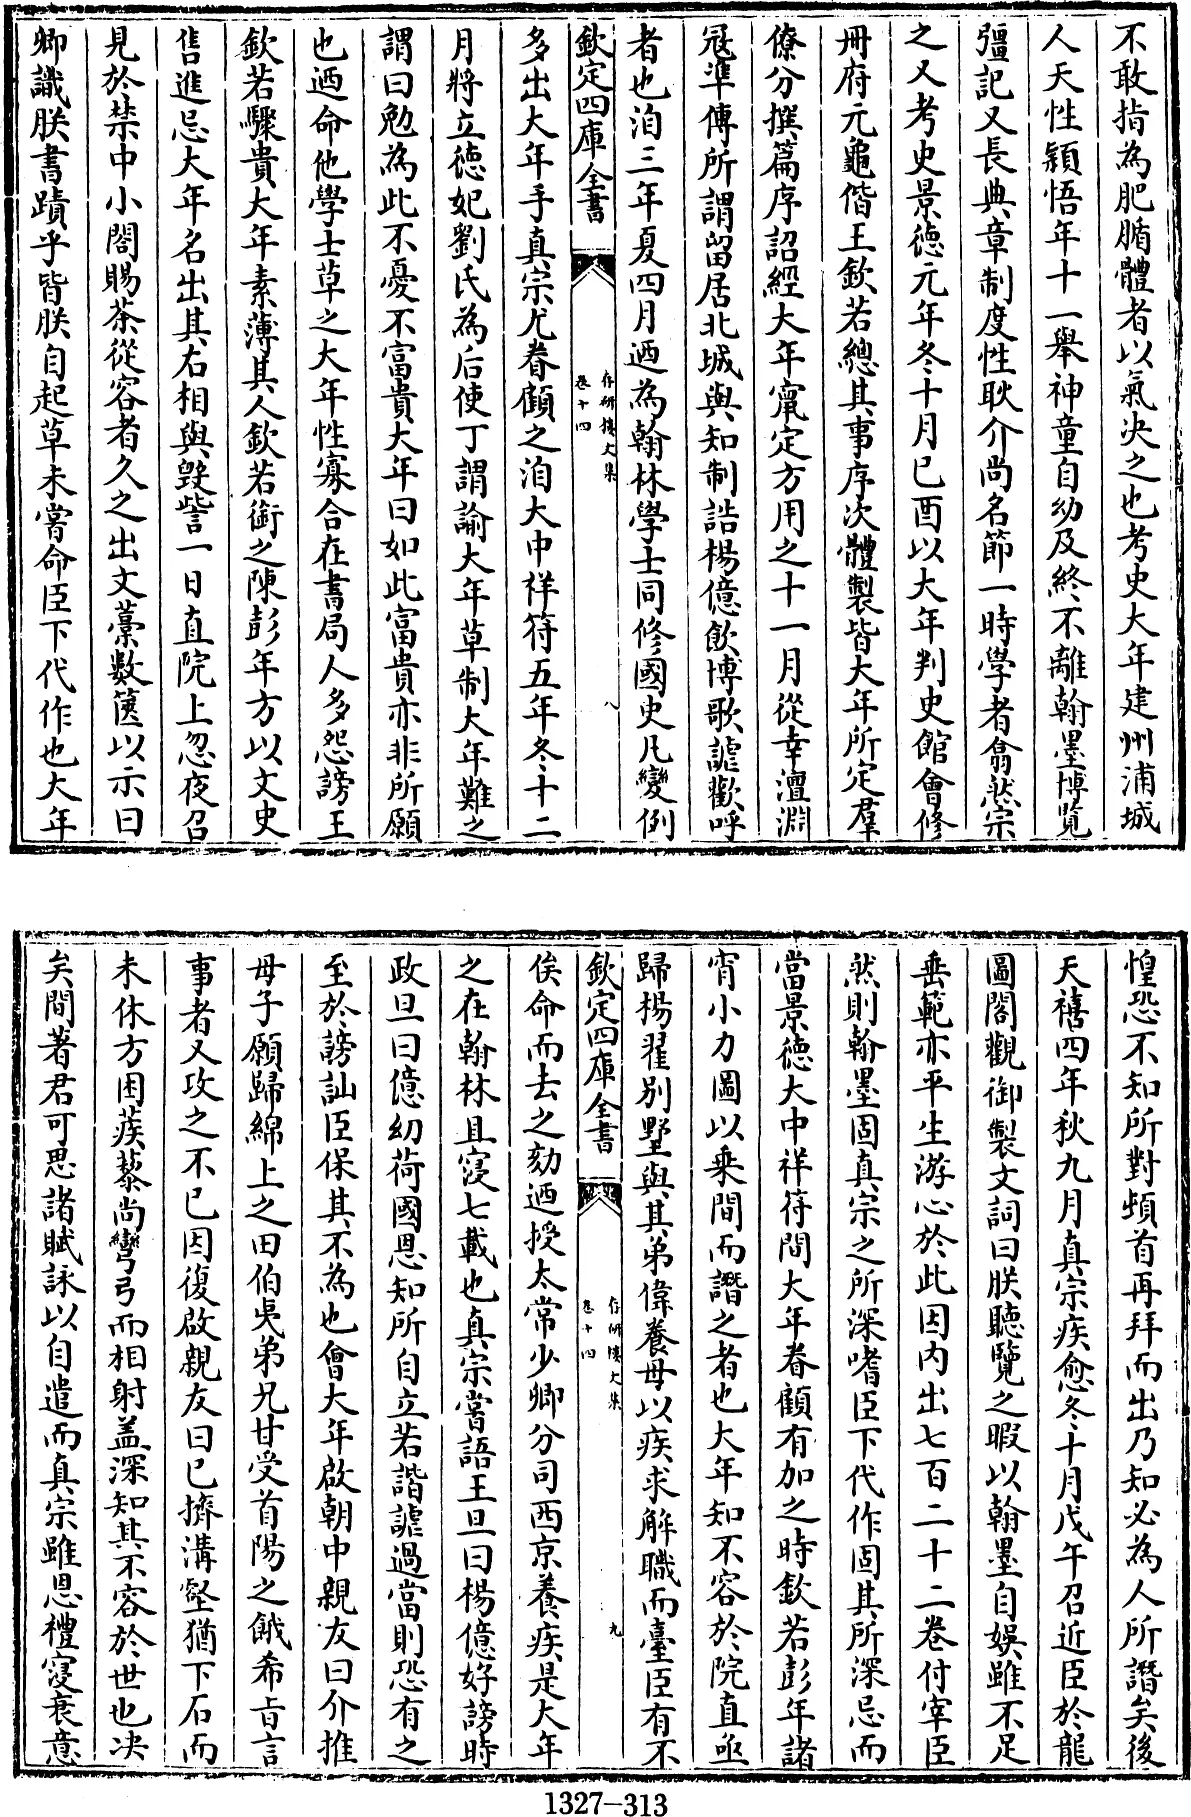 不敢指為肥腯體者以氣决之也考史大年建州浦城
人天性穎悟年十一舉神童自幼及終不離翰墨博覧
彊記又長典章制度性耿介尚名節一時學者翕然宗
之又考史景徳元年冬十月己酉以大年判史館會修
冊府元龜偕王欽若總其事序次體製皆大年所定羣
僚分撰篇序詔經大年竄定方用之十一月從幸澶淵
冦準傳所謂留居北城與知制誥楊億飲博歌謔歡呼
者也洎三年夏四月迺為翰林學士同修國史凡變例
欽定四庫全書
存研樓文集
卷十四
八
多出大年手真宗尤眷顧之洎大中祥符五年冬十二
月將立徳妃劉氏為后使丁謂諭大年草制大年難之
謂曰勉為此不憂不富貴大年曰如此富貴亦非所願
也迺命他學士草之大年性寡合在書局人多怨謗王
欽若驟貴大年素薄其人欽若銜之陳彭年方以文史
售進忌大年名出其右相與毀訾一日直院上忽夜召
見於禁中小閤賜茶從容者久之出文藁數篋以示曰
卿識朕書蹟乎皆朕自起草未嘗命臣下代作也大年
惶恐不知所對頓首再拜而出乃知必為人所譖矣後
天禧四年秋九月真宗疾愈冬十月戊午召近臣於龍
圖閣觀御製文詞曰朕聽覽之暇以翰墨自娛雖不足
垂範亦平生游心於此因内出七百二十二卷付宰臣
然則翰墨固真宗之所深嗜臣下代作固其所深忌而
當景徳大中祥符間大年眷顧有加之時欽若彭年諸
宵小力圖以乘間而譖之者也大年知不容於院直亟
歸楊翟别墅與其弟偉養母以疾求解職而臺臣有不
欽定四庫全書
存研樓文集
卷十四
九
俟命而去之劾迺授太常少卿分司西京養疾是大年
之在翰林且寖七載也真宗嘗語王旦曰楊億好謗時
政旦曰億幼荷國恩知所自立若諧謔過當則恐有之
至於謗訕臣保其不為也會大年啟朝中親友曰介推
母子願歸綿上之田伯夷弟兄甘受首陽之餓希㫖言
事者又攻之不已因復啟親友曰已擠溝壑猶下石而
未休方困蒺藜尚彎弓而相射盖深知其不容於世也决
矣間著君可思諸賦詠以自遣而真宗雖恩禮寖衰意
1327-313